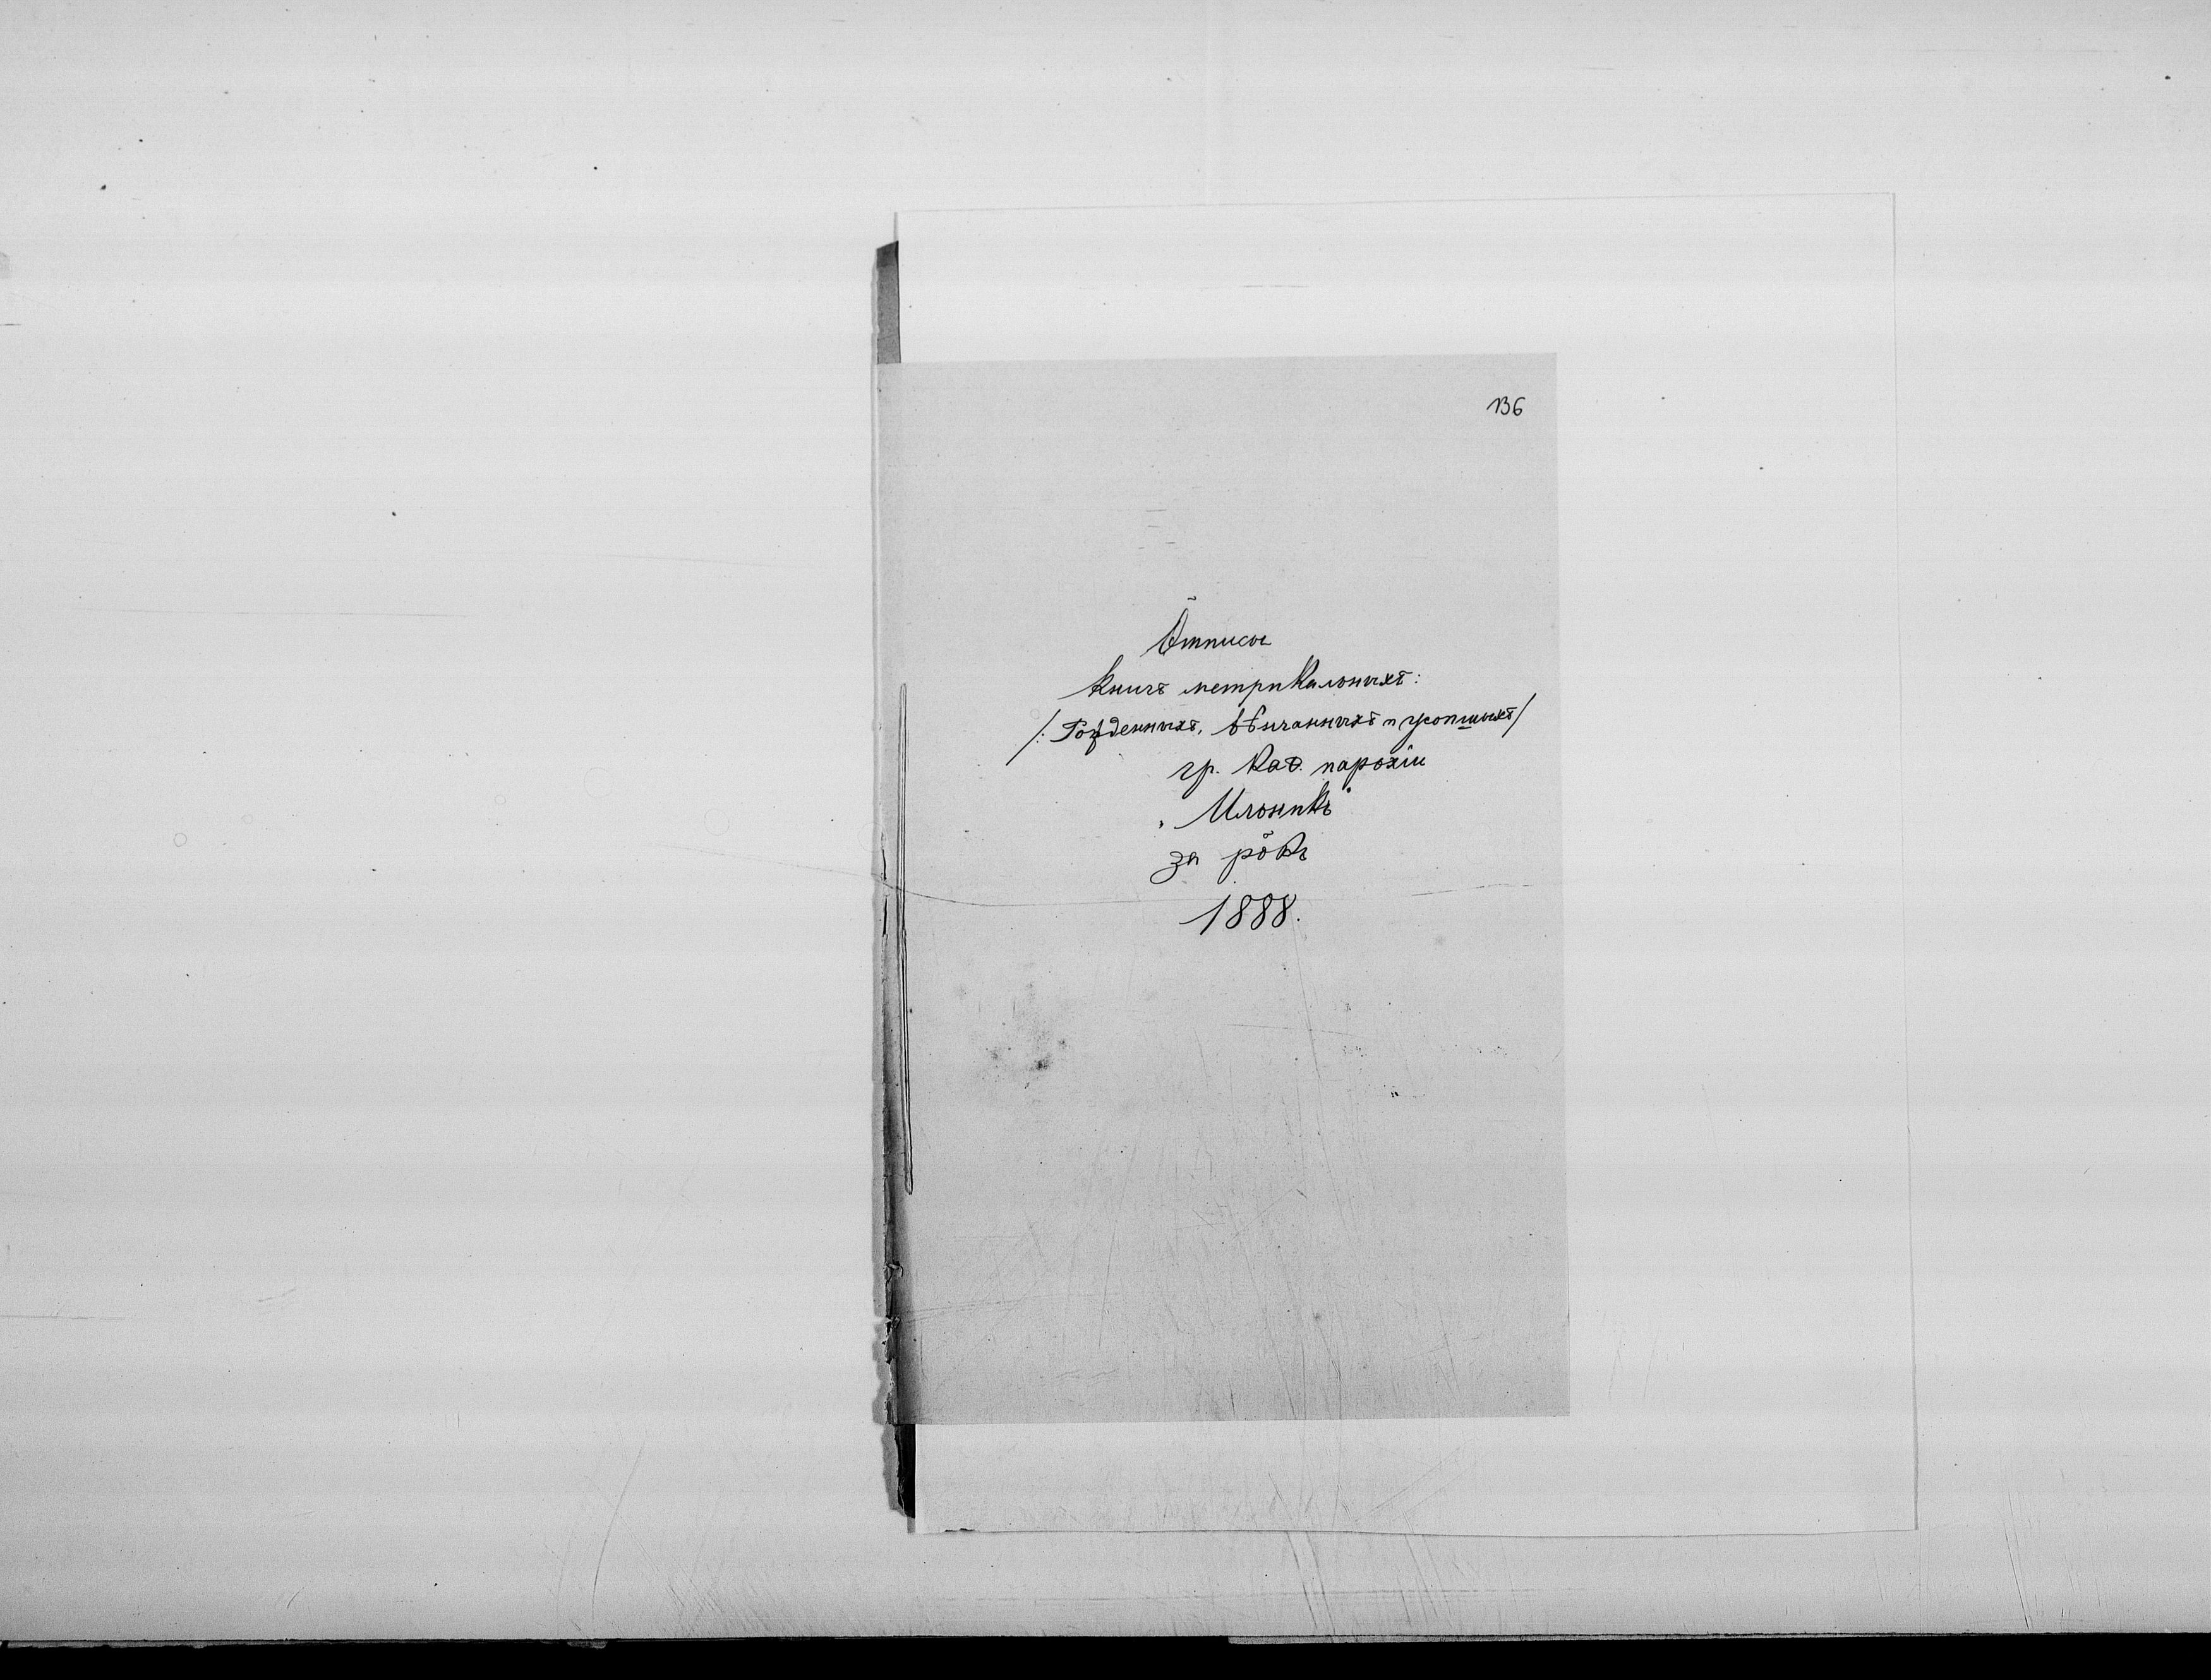 136
Ôтписы
книгъ метрикальныхъ:
/: Рожденныхъ, вѣнчанныхъ и усопшыхъ /
гр. каѳ. парохіи
„Ильникъ"
за рôкъ
1888.